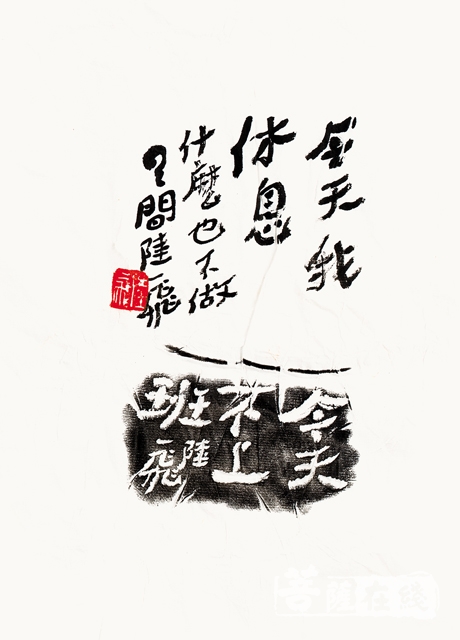 今天我
休息
什麼也不做
間陸一飛
今天
不上
班
陸一飛
菩薩在线